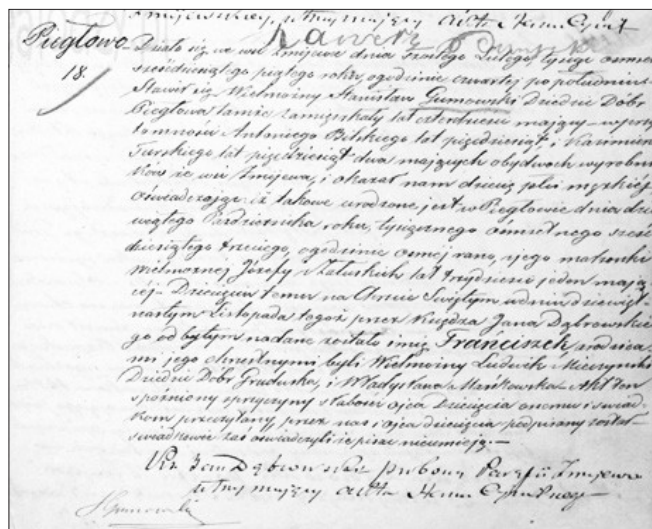 Pięgłowo
18.
Działo się we wsi Żmijewie dnia szóstego Lutego, tysiąc ośmset
sześćdziesiątego piątego roku, ogodzinie czwartej po południu
Stawił się Wielmożny Stanisław Gumowski Dziedzic Dóbr
Pięgłowa tamże zamieszkały lat czterdzieści mający w przy
tomności Antoniego Bilskiego lat pięćdziesiąt, i Kazimierza
lat pięćdziesiąt dwa mających obydwóch wyrobni
ków ze wsi Żmijewa, i okazał nam dziecię płci męzkiéj
oświadczając iż takowe urodzone jest w Pięgłowie dnia dzie
wiątego Października roku, tysiącznego ośmsetnego sześć
dziesiątego trzeciego, ogodzinie ósmej rano, z jego małżonki
Wielmożnej Józefy z Załuskich lat trzydzieści jeden mają
cej. Dziecięciu temu na Chrzcie Świętym, w dniu dziewięt
nastym Listopada tegoż przez Księdza Jana Dąbrowskie
go odbytym nadane zostało imię Franciszek, a rodzica
mi jego chrzestnymi byli Wielmożny Ludwik
Dziedzic Dóbr Gruduska, i Władysława Akt ten
spóźniony z przyczyny słabości ojca Dziecięcia onemu i świad
kom przeczytany, przez nas i ojca dziecięcia podpisany został
świadkowie zaś oświadczyli iż pisać nieumieją.
Jan Dąbrowski Proboszcz Parafii Żmijewo
utrzymujący Akta Stanu Cywilnego
SGumowski